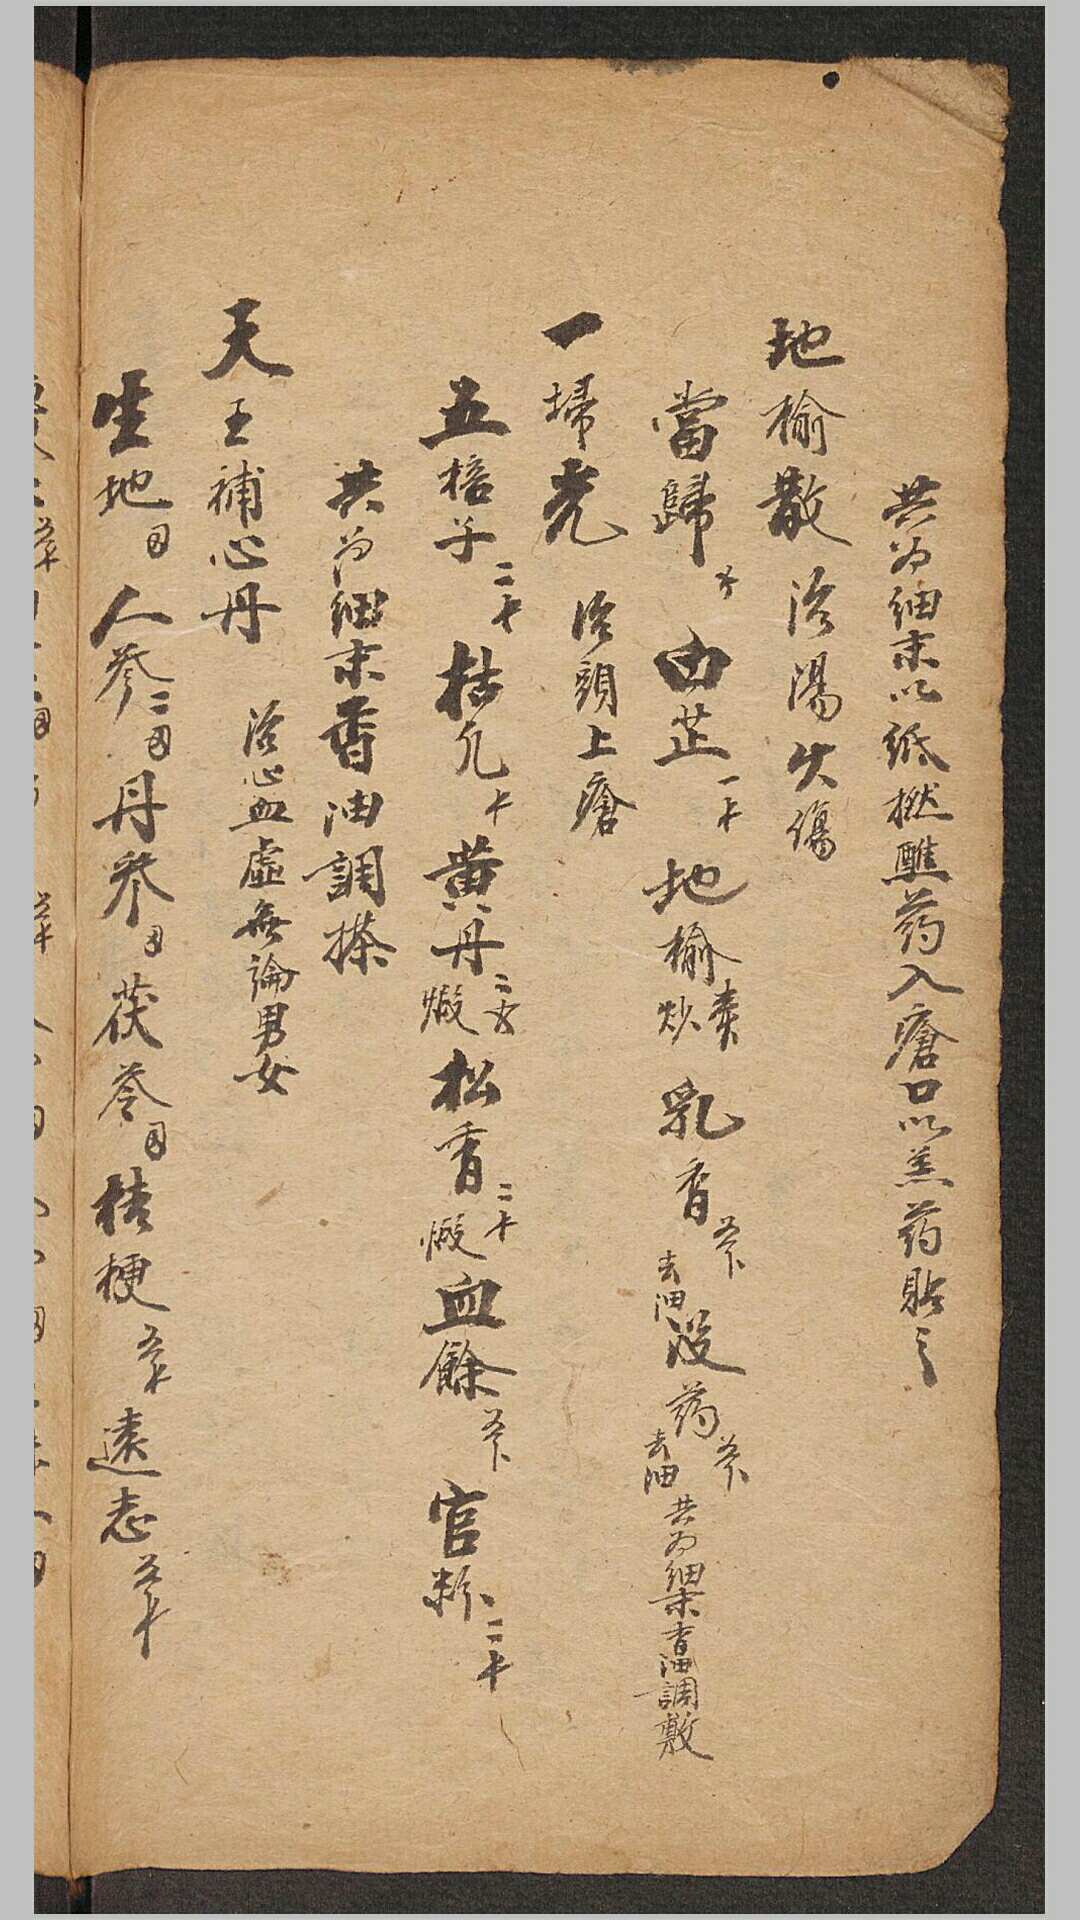 共为細末以紙撚醮药入瘡口以羔药貼之
地榆散 治湯火傷
當歸 白芷 一个 地榆 炒 乳香 去油 没药 去油 共为細末香油調敷
一掃光 治頭上瘡
五棓子 二 枯凡 黄丹 二 煅 松香 二 煅 血餘 官粉 二
共为細末香油調搽
天王補心丹 治心血虛無論男女
生地 人參 二 丹参 茯苓 桔梗 遠志